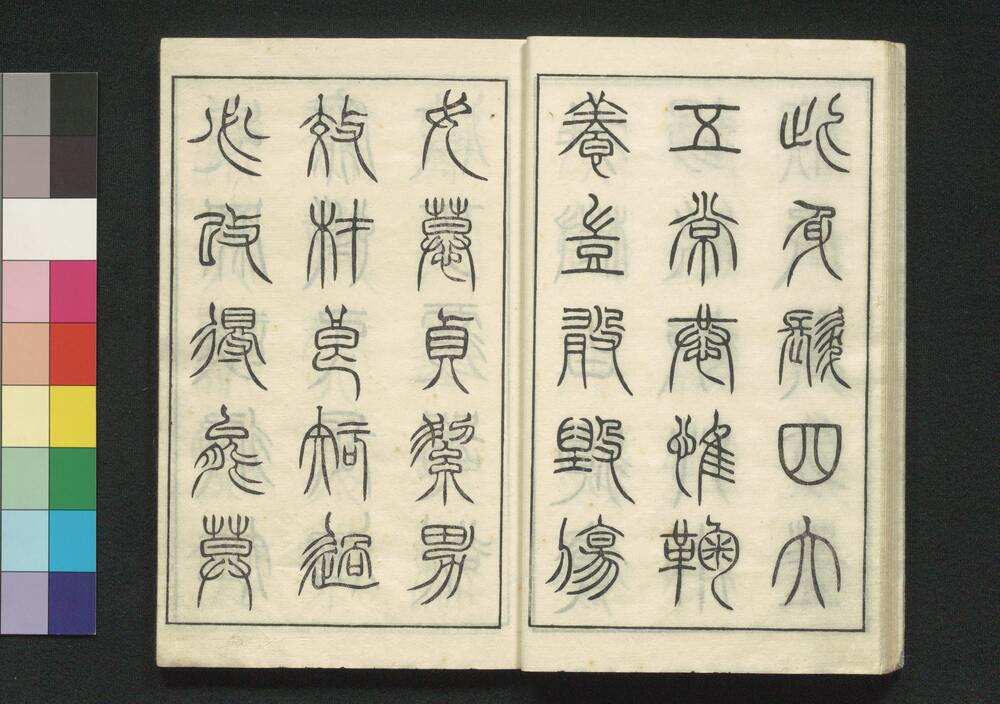 此身髮四大
五常恭惟鞠
養豈敢毀傷
女慕貞絜男
效材良知過
必改得能莫